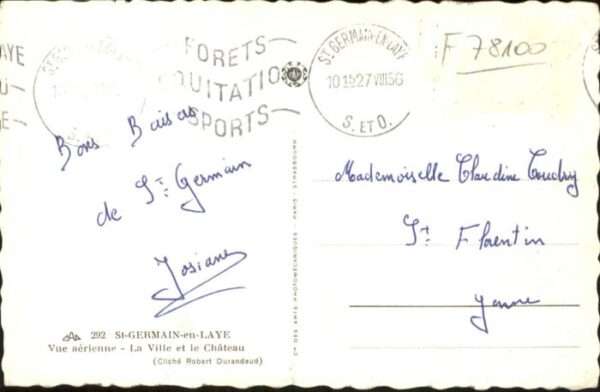 AYE
FORETS
QUITATIO
SPORTS
ST GERMAIN-EN-LAYE
1015 27 VIII 56
S. ET O.
F 78100
Bons Baisers
de St Germain
Josiane
Mademoiselle Claudine
St Florentin
Yonne
292 St-GERMAIN-en-LAYE
Vue aérienne - La Ville et le Château
(Cliché Robert Durandaud)
Cie DES ARTS PHOTOMÉCANIQUES - PARIS - STRASBOURG